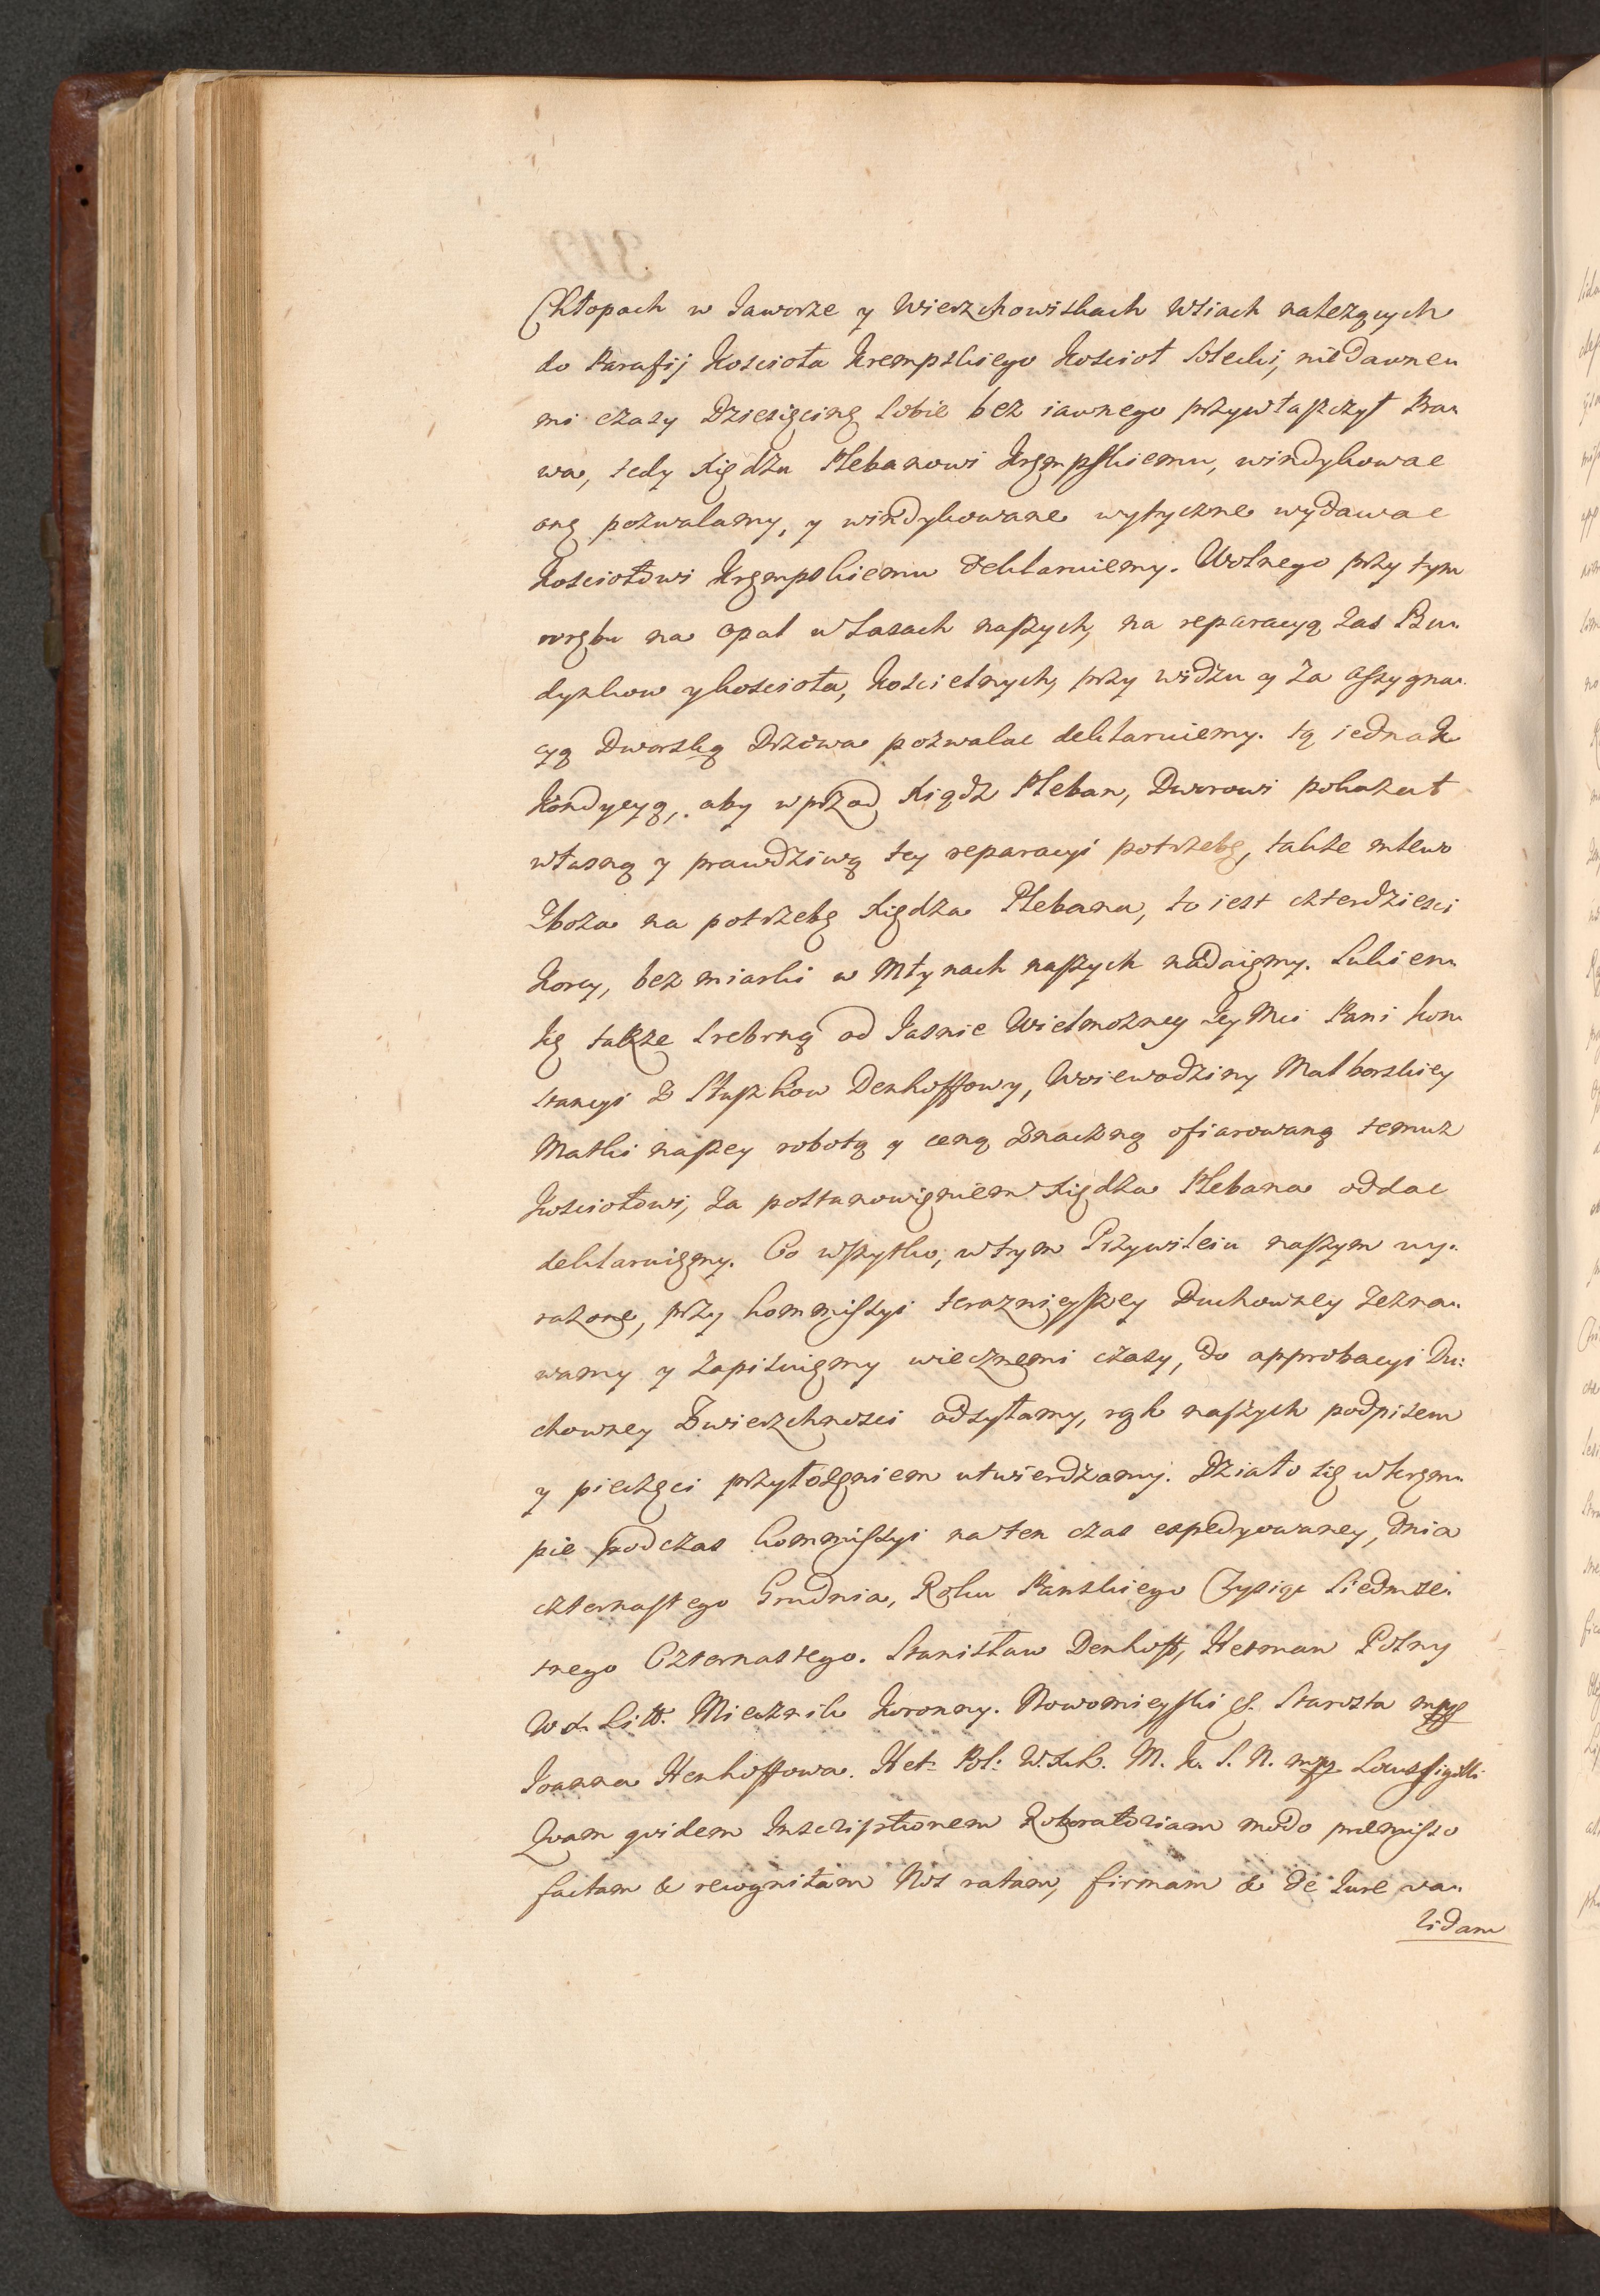 Chłopach w Jaworze y Wierzchowiskach wsiach należących
do Parafij Kościoła Krempskiego Kościoł Solecki, niedawne-
mi czasy Dziesięcinę sobie bez iawnego przywłaszczył Pra-
wa, tedy Xiędzu Plebanowi Krempskiemu, windykowac
onę pozwalamy, y windykowane wytyczne wydawac
Kościołowi Krempskiemu deklaruiemy. Wolnego przy tym
wrębu na opał w Lasach naszych, na reparacyą zas Bu-
dynkow y kościoła, kościelnych, przy widzu y za assygna-
cyą Dworską Drzewa pozwalac deklaruiemy. tą iednak
Kondycyą, aby wprzod Xiądz Pleban, Dworowi pokazał
własną y prawdziwą tey reparacyi potrzebę, także mlewo
Zboza na potrzebę Xiędza Plebana, to iest czterdziesci
Korcy, bez miarki w Młynach naszych nadaiemy. Sukien-
kę także srebrną od Jasnie Wielmożney Jey Mci Pani Kon-
stancyi z Słuszkow Denhoffowy, Woiewodziny Malborskiey
Matki naszey robotą y ceną znaczną ofiarowaną temuz
Kosciołowi, za postanowieniem Xiędza Plebana oddac
deklaruiemy. Co wszytko, w tym Przywileiu naszym wy-
rażone, przy kommissyi teraznieyszey Duchowney zezna-
wamy y zapisuiemy wiecznemi czasy, do approbacyi Du-
chowney Zwierzchnosci odsyłamy, rąk naszych podpisem
y pieczęci przyłożeniem utwierdzamy. Działo się w Krem-
pie podczas kommissyi na ten czas expedyowaney, dnia
czternastego Grudnia, Roku Panskiego Tysiąc siedmse-
tnego Czternastego. Stanisław Denhoff, Hetman Polny
W. X. Litt. Miecznik Koronny. Nowomieyski &. Starosta mpp
Joanna Henhoffowa. Het: Pol: W. X. L. M. K. S. N. mpp. Locus sigilli
Quam quidem Inscriptionem Roboratoriam modo praemisso
factam & recognitam Nos ratam, firmam & de Jure va-
lidam